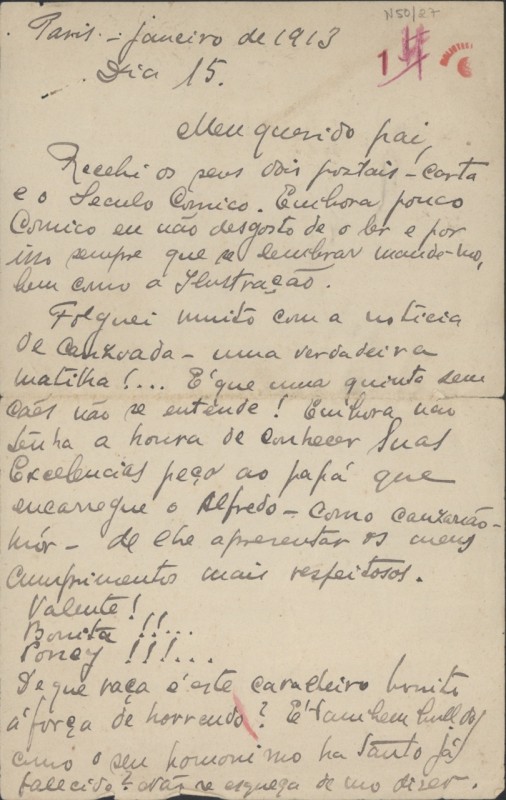 N50/27
Paris. – janeiro de 1913
Dia 15.
1
Meu querido pai,
Recebi os seus dois postais – carta
e o Seculo Comico. Embora pouco
Comico eu não desgosto de o ler e por
isso sempre que se lembrar mande-mo,
bem como a Ilustração.
Folguei muito com a noticia
de canzoada – uma verdadeira
matilha!... E' que uma quinta sem
cães não se entende! Embora não
tenha a honra de conhecer Suas
Excelencias peço ao papá que
encarregue o Alfredo – como canzarrão-
mór – de lhe apresentar os meus
cumprimentos mais respeitosos.
Valente!
Bonita!!!...
Poney!!!!...
De que raça é este cavalheiro bonito
á força de horrendo? E' tambem bulldog
como o seu homonimo ha tanto já
falecido? Não se esqueça de mo dizer.